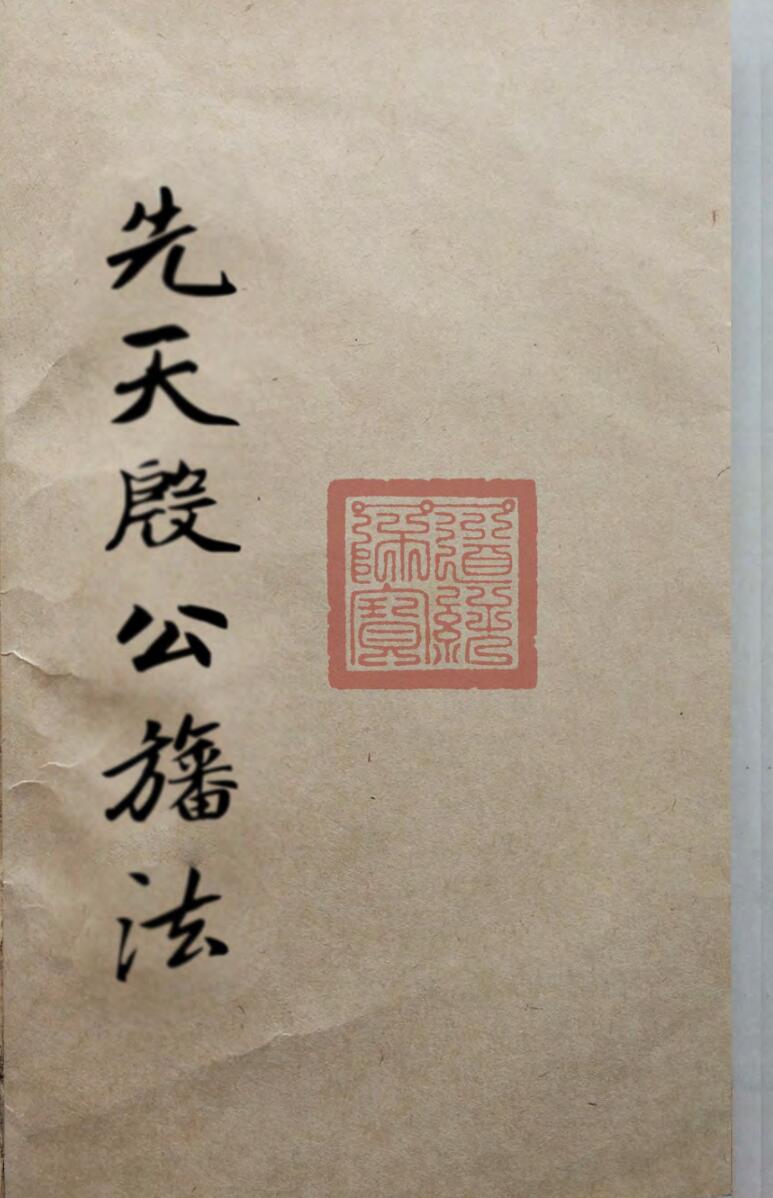 先天殷公旛法
道經
師寶